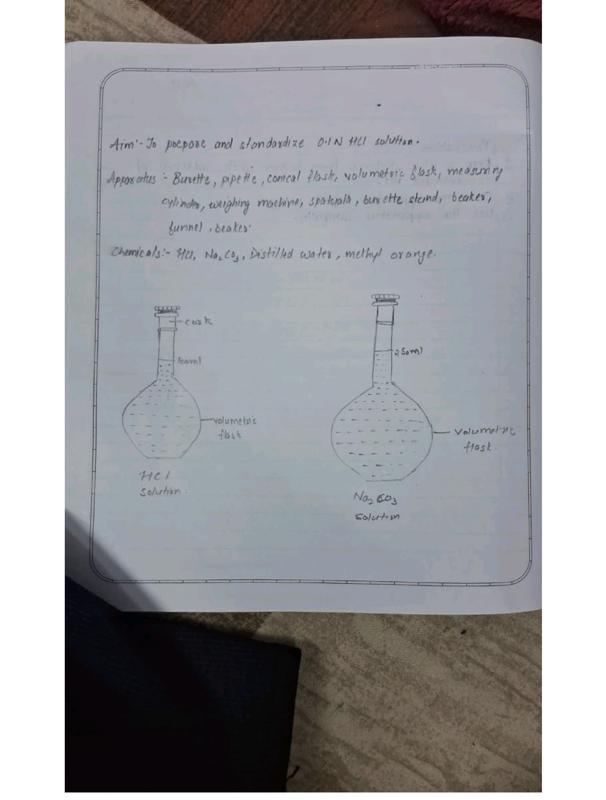 Aim:- To prepare and standardize 0.1 N HCl solution.
Apparatus :- Burette, pipette, conical flask, volumetric flask, measuring
cylinder, weighing machine, spatula, burette stand, beaker,
funnel, beaker.
Chemicals:- HCl, Na₂CO₃, Distilled water, methyl orange.
cork
250ml
volumetric
flask
volumetric
flask
HCl
solution
Na₂CO₃
solution